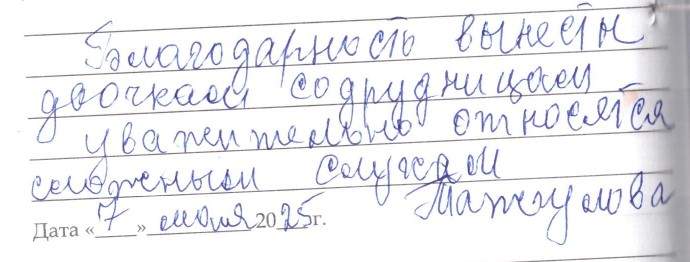 Благодарность вынести
двочкам содрудницам
уважительно относятся
сложеным случаям
Дата «7» июля 2025г.